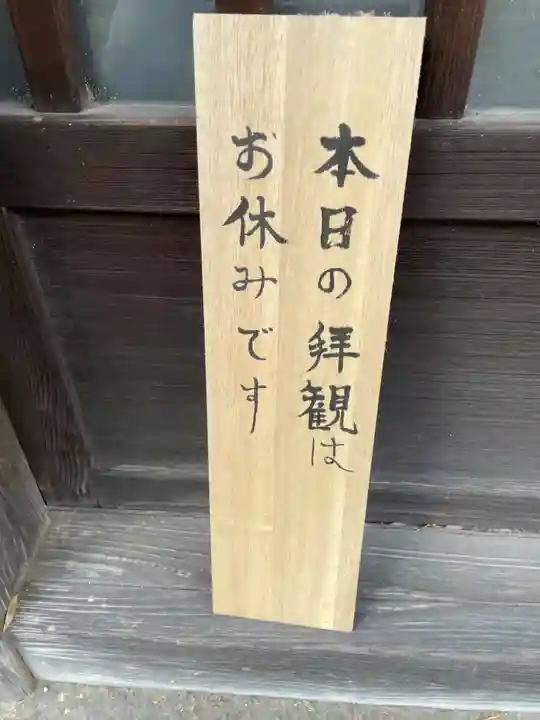 本日の拝観は
お休みです